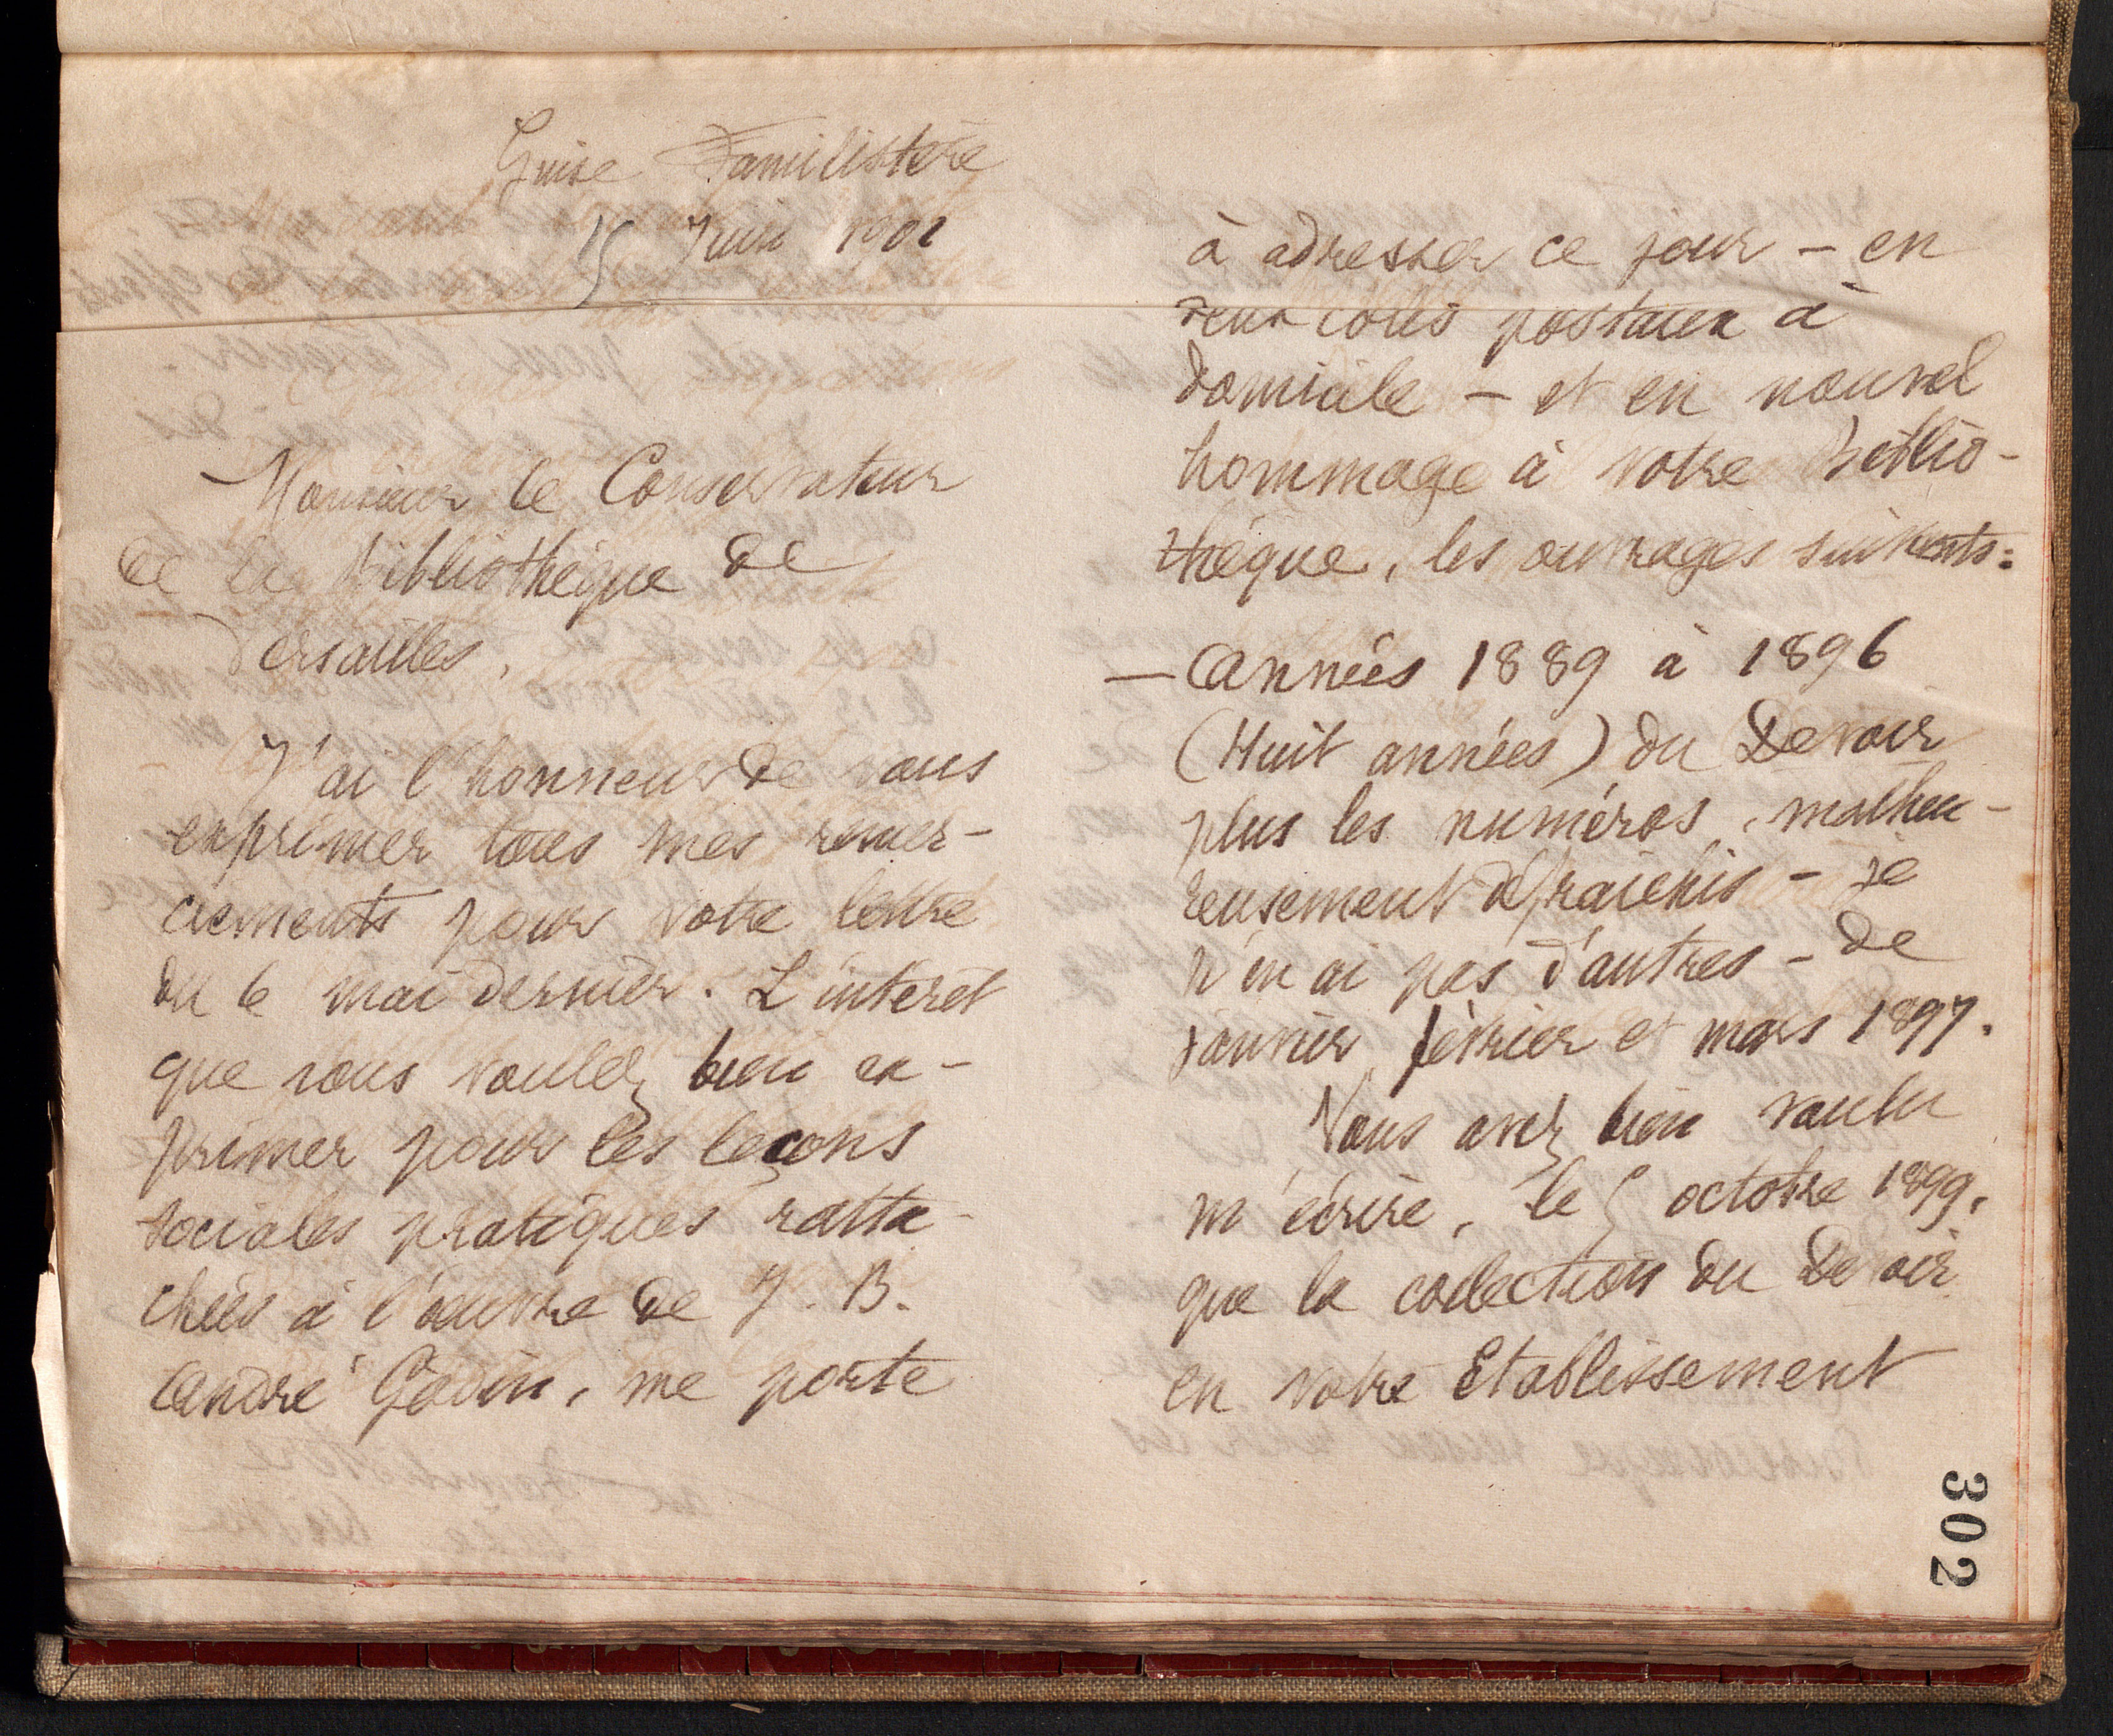 Guise Familistère
15 Juin 1901
Monsieur le Conservateur
de la Bibliothèque de
Versailles,
J'ai l'honneur de vous
exprimer tous mes remer-
ciements pour votre lettre
du 6 mai dernier. L'intérêt
que vous voulez bien ex-
primer pour les leçons
sociales pratiques ratta-
chées à l'œuvre de J. B.
André Godin, me porte
à adresser ce jour - en
deux colis postaux à
domicile - et en nouvel
hommage à votre Biblio-
thèque, les ouvrages suivants:
- Années 1889 à 1896
(Huit années) du Devoir
plus les numéros, malheu-
reusement défraichis - je
n'en ai pas d'autres - de
janvier, février et mars 1897.
Vous avez bien voulu
m'écrire, le 5 octobre 1899,
que la collection du Devoir
en votre Etablissement
302